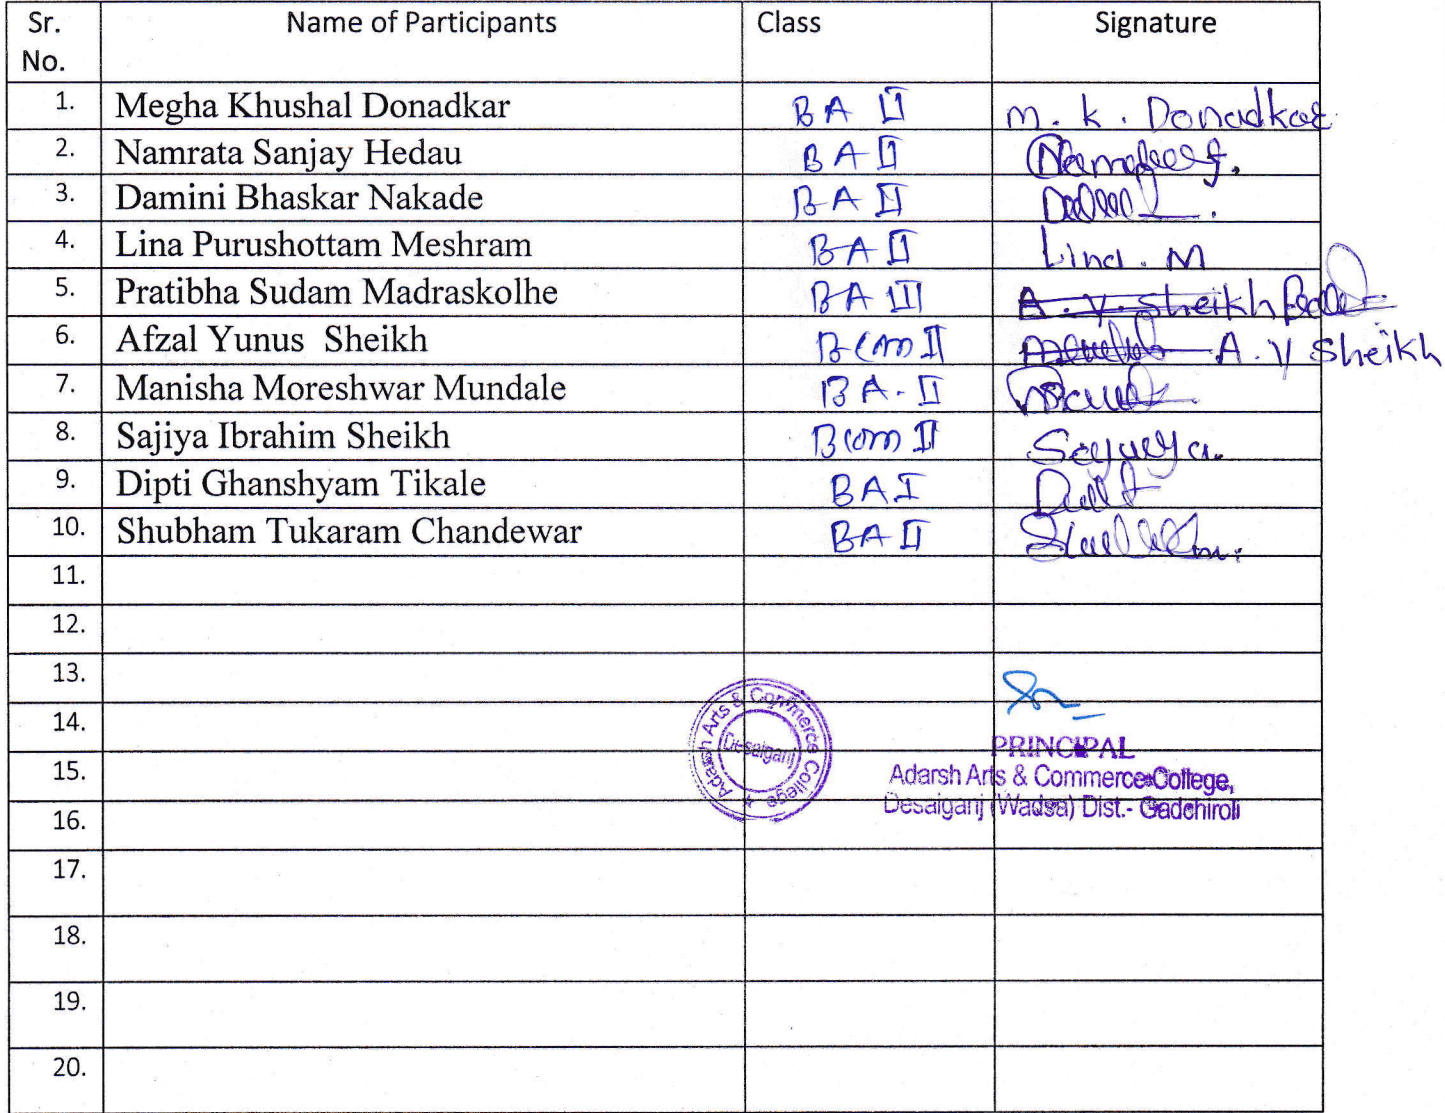 Sr. No. Name of Participants Class Signature
1. Megha Khushal Donadkar BA II m. k. Donadkar
2. Namrata Sanjay Hedau BA II
3. Damini Bhaskar Nakade BA II
4. Lina Purushottam Meshram BA II Lina. M
5. Pratibha Sudam Madraskolhe BA III A. Y. Sheikh
6. Afzal Yunus Sheikh B com II A. Y Sheikh
7. Manisha Moreshwar Mundale BA. II
8. Sajiya Ibrahim Sheikh B com II
9. Dipti Ghanshyam Tikale BA I
10. Shubham Tukaram Chandewar BA II
11.
12.
13.
14.
15.
16.
17.
18.
19.
20.
Adarsh Arts & Commerce College
Desaiganj
PRINCIPAL
Adarsh Arts & Commerce College,
Desaiganj (Wadsa) Dist.- Gadchiroli